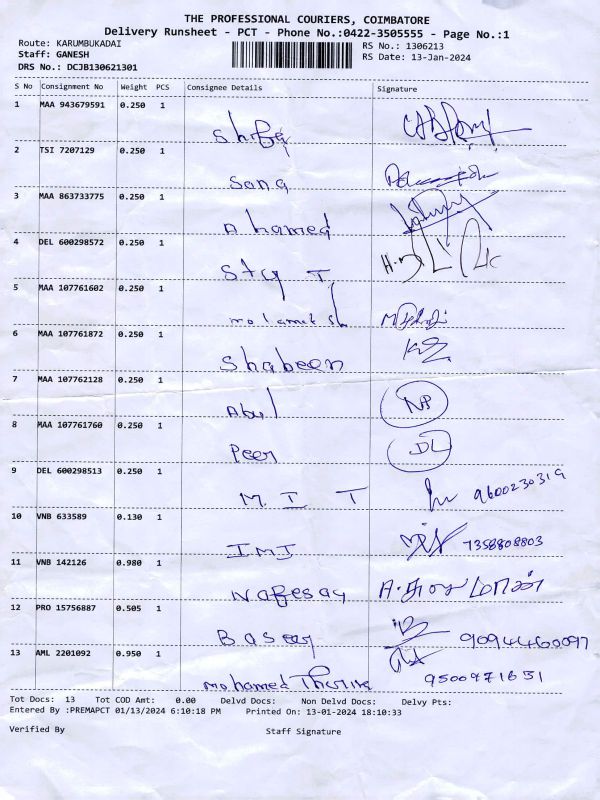 THE PROFESSIONAL COURIERS, COIMBATORE
Delivery Runsheet - PCT - Phone No.:0422-3505555 - Page No.:1
Route: KARUMBUKADAI RS No.: 1306213
Staff: GANESH RS Date: 13-Jan-2024
DRS No.: DCJB130621301
S No Consignment No Weight PCS Consignee Details Signature
1 MAA 943679591 0.250 1
2 TSI 7207129 0.250 1
Sana
3 MAA 863733775 0.250 1
Ahamed
4 DEL 600298572 0.250 1
5 MAA 107761602 0.250 1
6 MAA 107761872 0.250 1
Shabeen
7 MAA 107762128 0.250 1
Abul NP
8 MAA 107761760 0.250 1
Peer DL
9 DEL 600298513 0.250 1
M. I T 9600230319
10 VNB 633589 0.130 1
IMI 7358808803
11 VNB 142126 0.980 1
12 PRO 15756887 0.505 1
9094460097
13 AML 2201092 0.950 1
mohamed 9500971651
Tot Docs: 13 Tot COD Amt: 0.00 Delvd Docs: Non Delvd Docs: Delvy Pts:
Entered By :PREMAPCT 01/13/2024 6:10:18 PM Printed On: 13-01-2024 18:10:33
Verified By Staff Signature